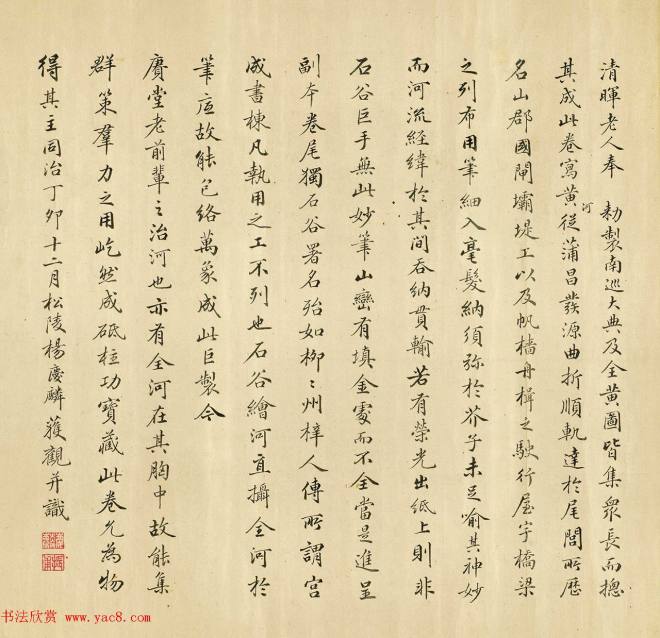 清暉老人奉 勅製南巡大典及全黃圖皆集衆長而摠
其成此卷寫黃河從蒲昌發源曲折順軌達於尾閭所歷
名山郡國閘壩堤工以及帆檣舟楫之駛行屋宇橋梁
之列布用筆細入毫髮納須弥於芥子未足喻其神妙
而河流經緯於其間吞納貫輸若有榮光出紙上則非
石谷巨手無此妙筆山巒有填金處而不全當是進呈
副本卷尾獨石谷署名殆如栁〻州梓人傳所謂宫
成書棟凡執用之工不列也石谷繪河直攝全河於
筆底故能包絡萬象成此巨製今
賡堂老前輩之治河也亦有全河在其胸中故能集
群策羣力之用屹然成砥柱功寶藏此卷允為物
得其主同治丁卯十二月松陵楊慶麟獲觀并識
书法欣赏 www.yac8.com